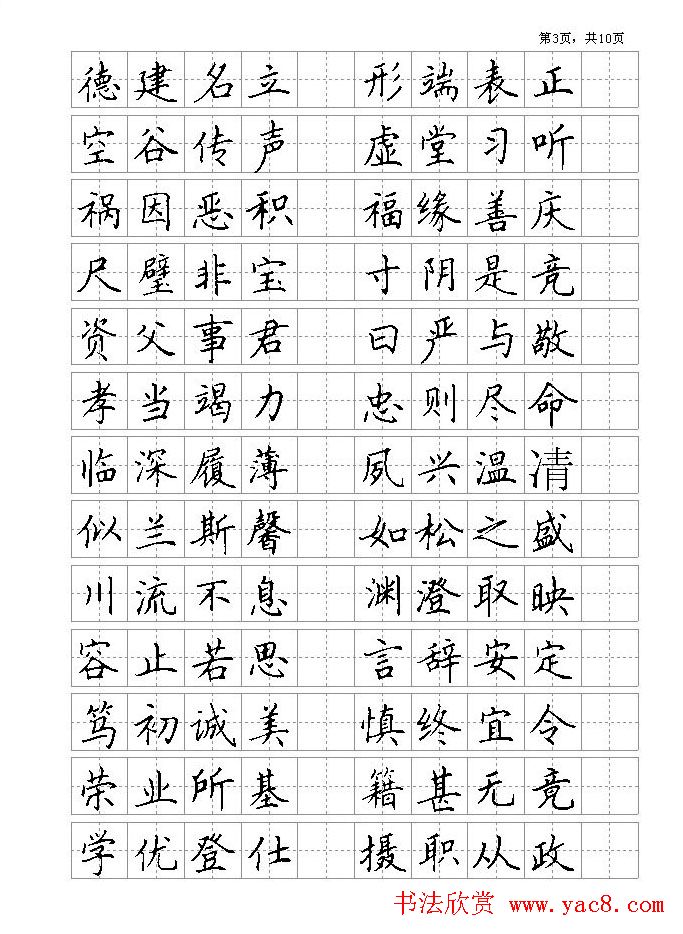 第3页，共10页
德建名立 形端表正
空谷传声 虚堂习听
祸因恶积 福缘善庆
尺璧非宝 寸阴是竞
资父事君 曰严与敬
孝当竭力 忠则尽命
临深履薄 夙兴温凊
似兰斯馨 如松之盛
川流不息 渊澄取映
容止若思 言辞安定
笃初诚美 慎终宜令
荣业所基 籍甚无竟
学优登仕 摄职从政
书法欣赏 www.yac8.com